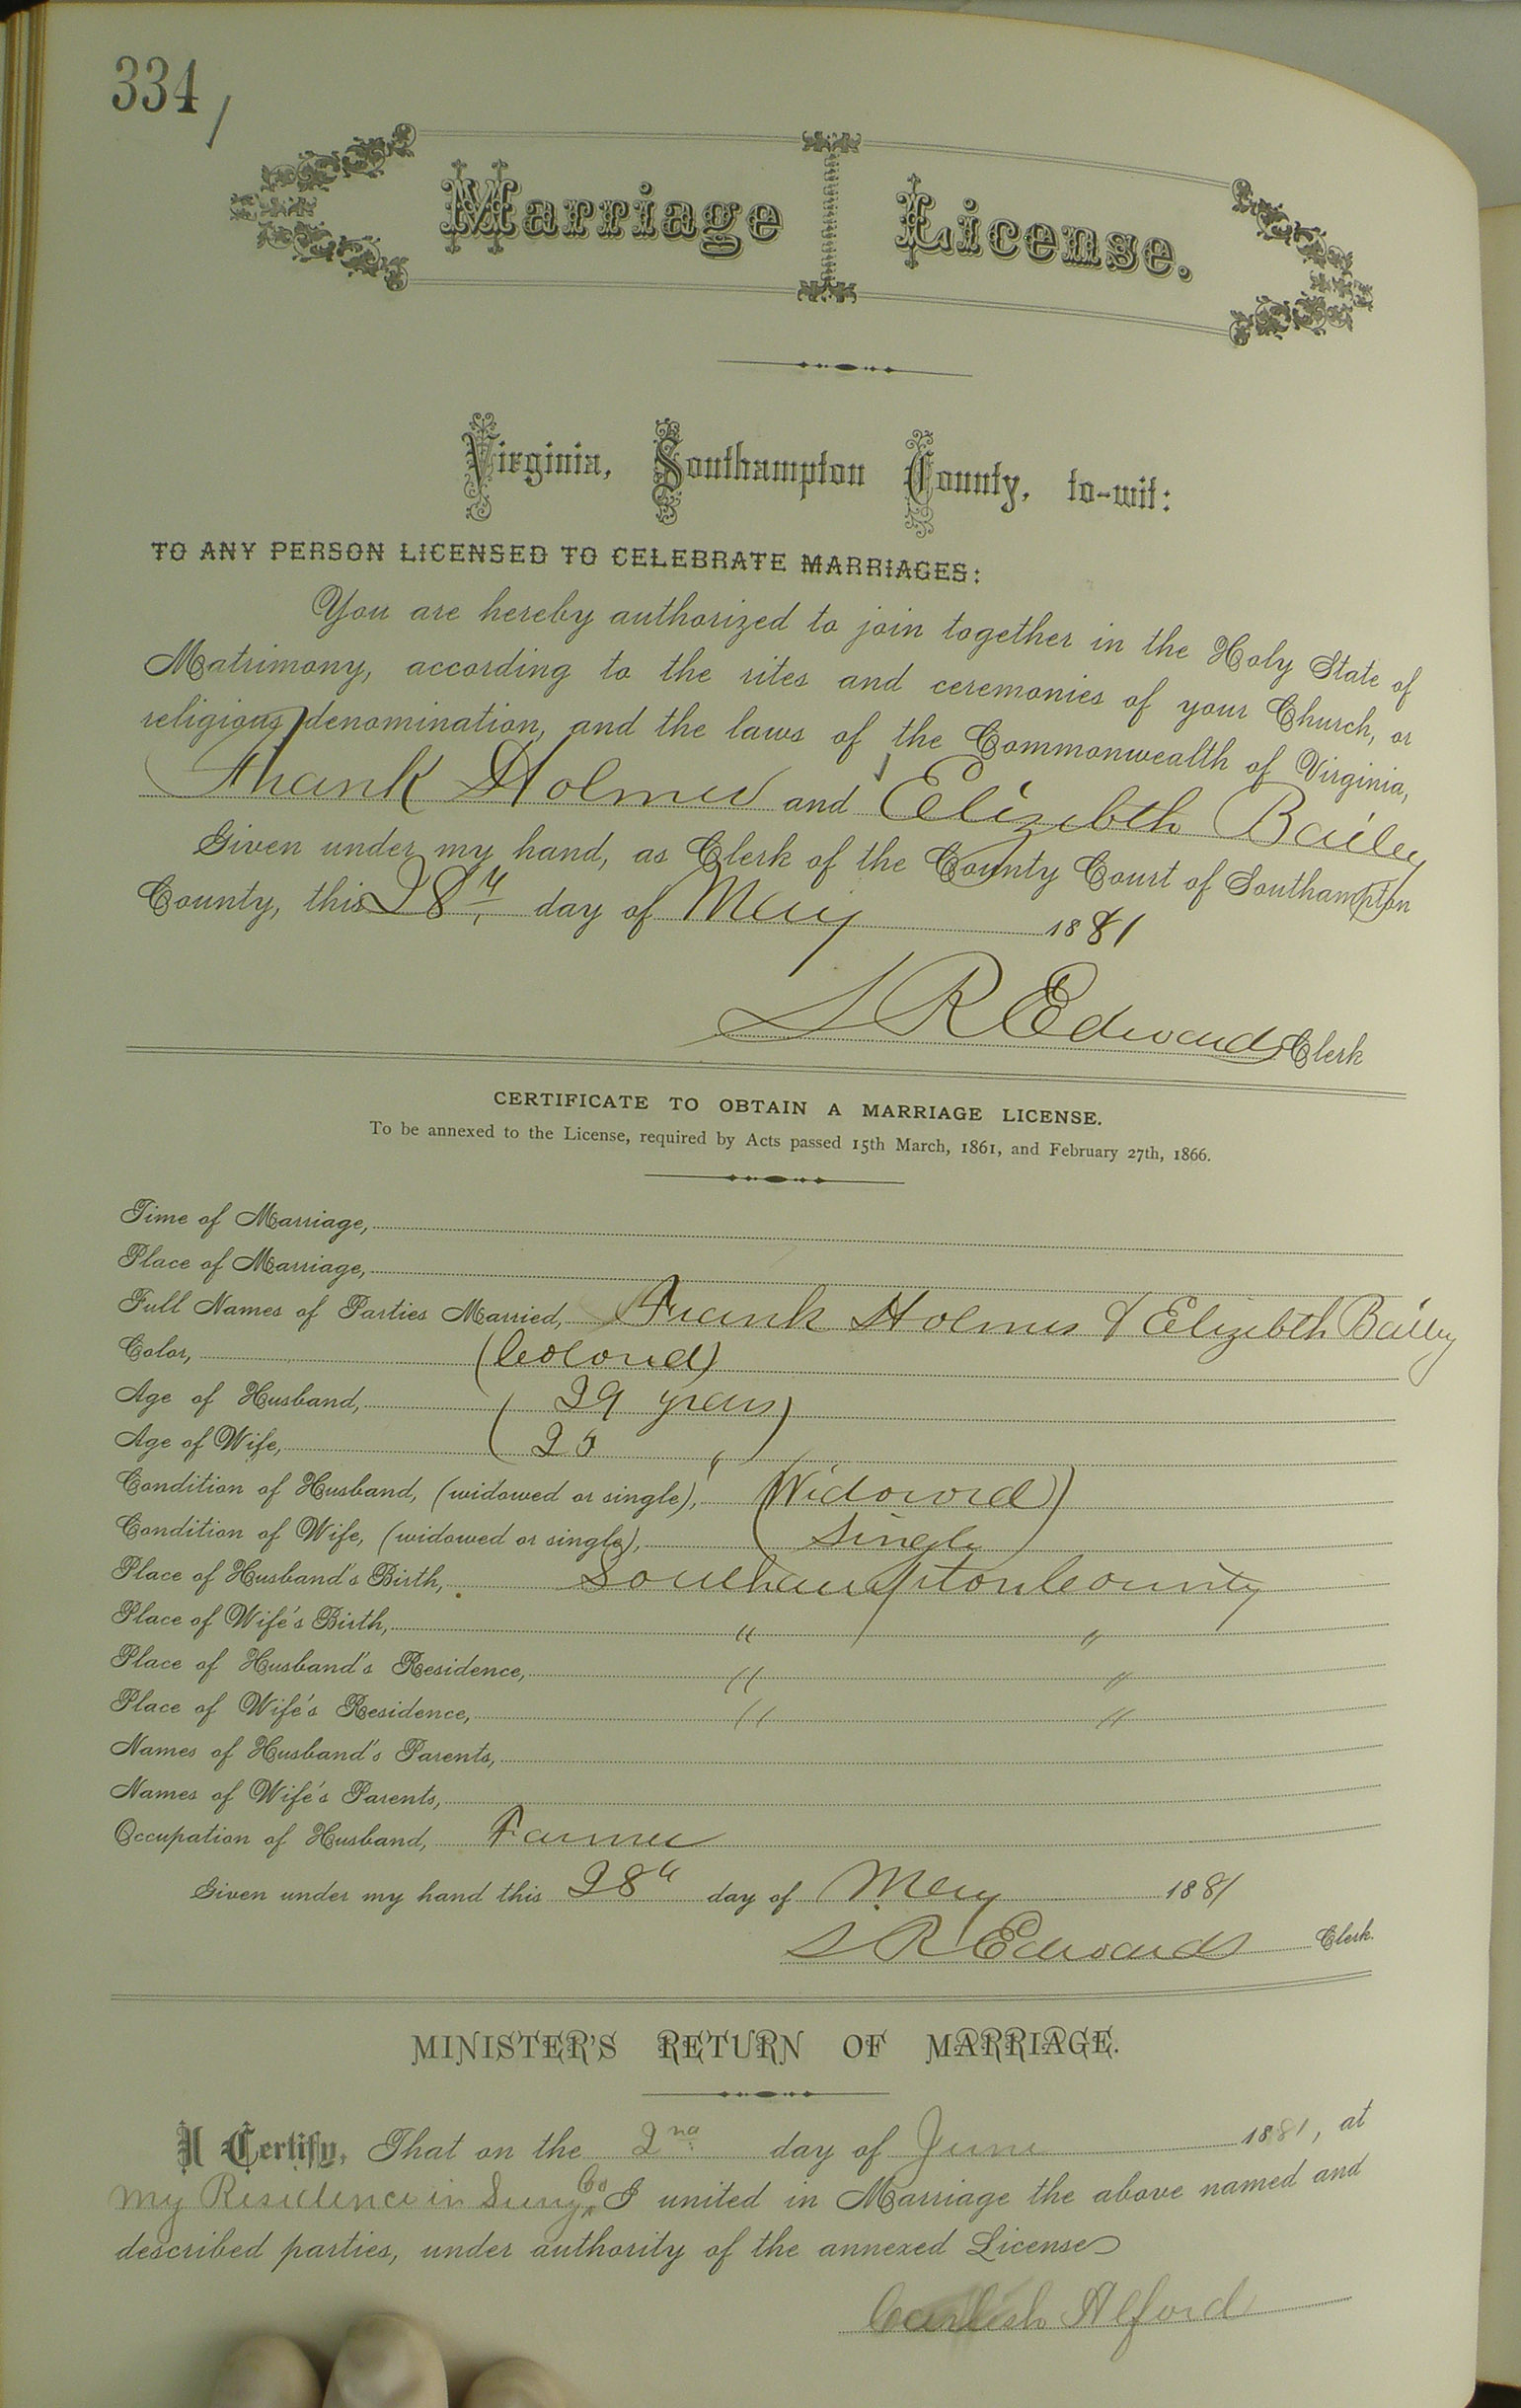 334
Marriage License.
Virginia, Southampton County, to-wit:
TO ANY PERSON LICENSED TO CELEBRATE MARRIAGES:
You are hereby authorized to join together in the Holy State of
Matrimony, according to the rites and ceremonies of your Church, or
religious denomination, and the laws of the Commonwealth of Virginia,
Frank Holmes and Elizebth Bailey
Given under my hand, as Clerk of the County Court of Southampton
County, this 28th day of May 1881
L R Edwards Clerk
CERTIFICATE TO OBTAIN A MARRIAGE LICENSE.
To be annexed to the License, required by Acts passed 15th March, 1861, and February 27th, 1866.
Time of Marriage,
Place of Marriage,
Full Names of Parties Married, Frank Holmes & Elizebth Bailey
Color, (Colored)
Age of Husband, (29 years)
Age of Wife, (25 ")
Condition of Husband, (widowed or single), (Widowed)
Condition of Wife, (widowed or single), (Single)
Place of Husband's Birth, Southampton County
Place of Wife's Birth, " "
Place of Husband's Residence, " "
Place of Wife's Residence, " "
Names of Husband's Parents,
Names of Wife's Parents,
Occupation of Husband, Farmer
Given under my hand this 28th day of May 1881
L R Edwards Clerk.
MINISTER'S RETURN OF MARRIAGE.
I Certify, That on the 2nd day of June 1881, at
My Residence in Surry Co I united in Marriage the above named and
described parties, under authority of the annexed License
Alford